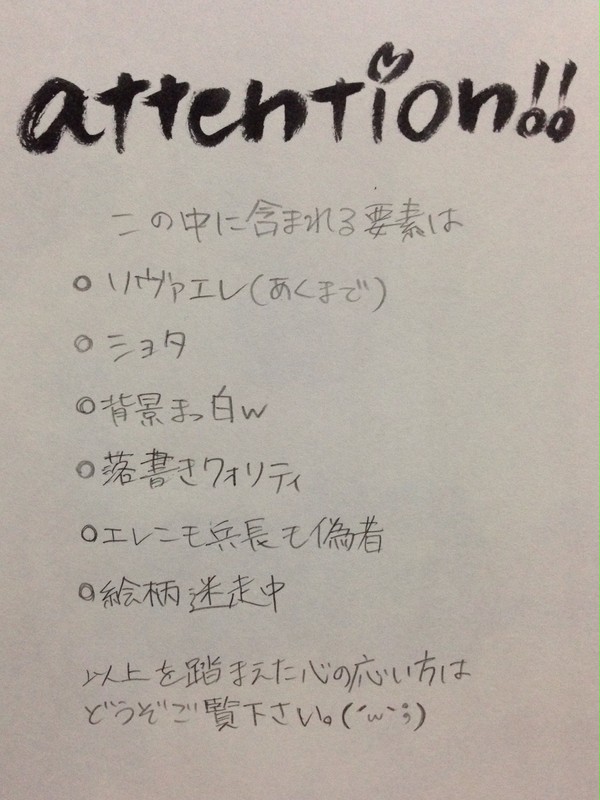 attention!!
この中に含まれる要素は
リヴァエレ(あくまで)
ショタ
背景まっ白w
落書きクォリティ
エレンモ兵長モ偽者
絵柄迷走中
以上を踏まえた心の応い方は
どうぞご覧下さい。(´w`;)